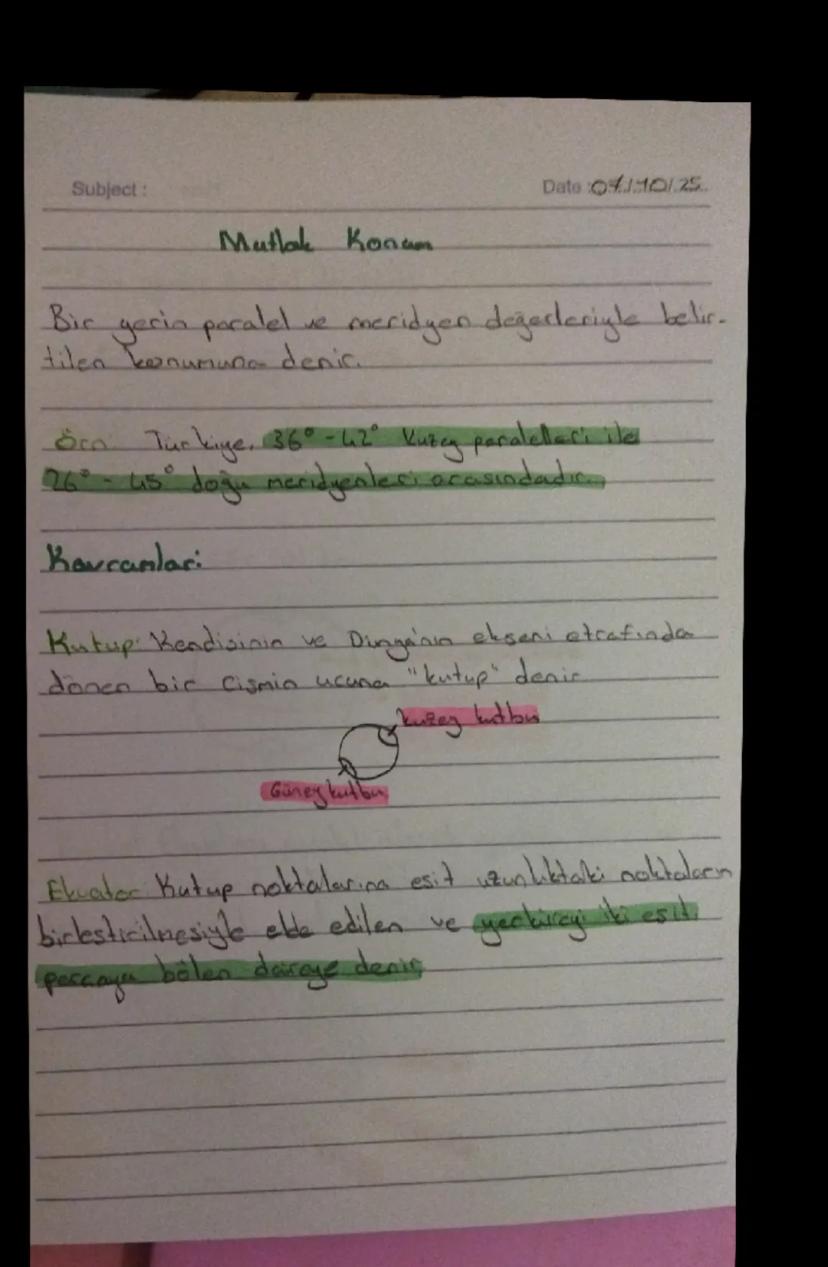 Subject :
Date :07/10/25
Mutlak Konum
Bir yerin paralel ve meridyen değerleriyle belir-
tilen konumuna denir.
Örn: Türkiye, 36° - 42° Kuzey paralelleri ile
26° - 45° doğu meridyenleri arasındadır.
Kavramlar:
Kutup: Kendisinin ve Dünya'nın ekseni etrafında
dönen bir cismin ucuna "kutup" denir
kuzey kutbu
Güney kutbu
Ekvator: Kutup noktalarına esit uzunluktaki noktaların
birlestirilmesiyle elde edilen ve yerküreyi iki esit
parcaya bölen daireye denir